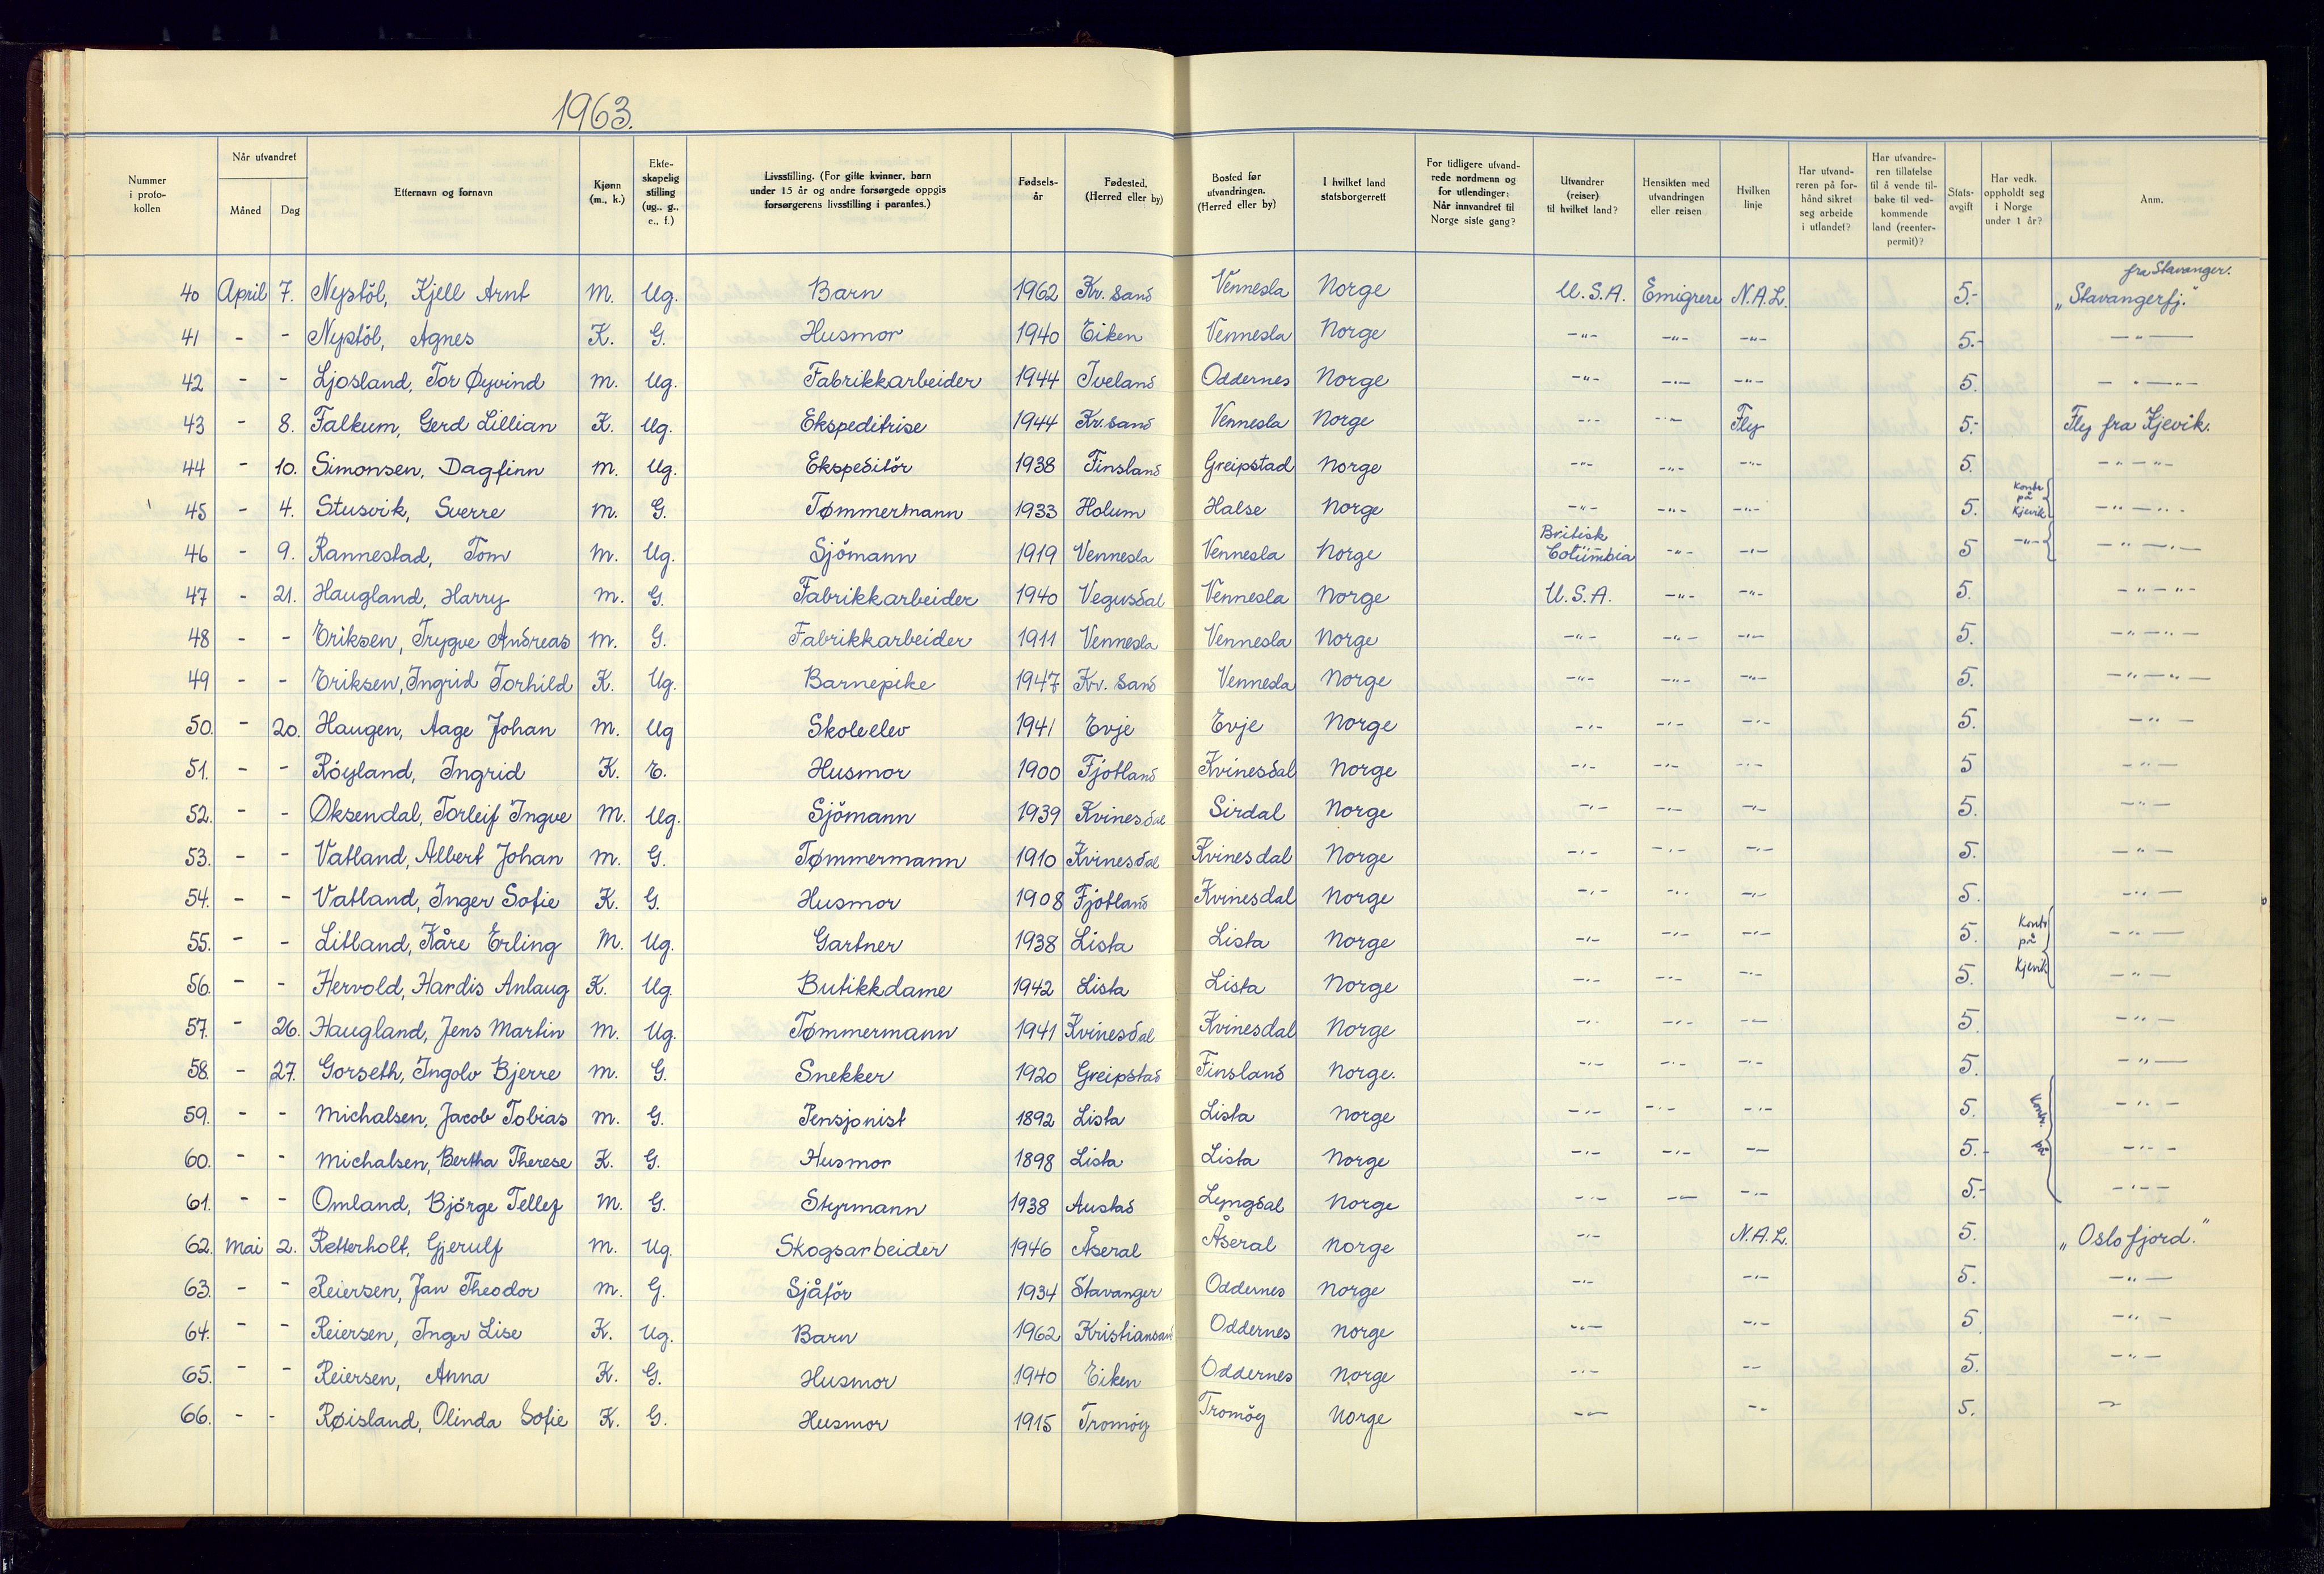 1963.
Nummer i proto-kollen | Når utvandret Måned Dag | Etternavn og fornavn | Kjønn (m., k.) | Ekte-skapelig stilling (ug., g., e., f.) | Livsstilling. (For gifte kvinner, barn under 15 år og andre forsørgede oppgis forsørgerens livsstilling i parantes.) | Fødsels-år | Fødested. (Herred eller by) | Bosted før utvandringen. (Herred eller by) | I hvilket land statsborgerrett | For tidligere utvand-rede nordmenn og for utlendinger: Når innvandret til Norge siste gang? | Utvandrer (reiser) til hvilket land? | Hensikten med utvandringen eller reisen | Hvilken linje | Har utvand-reren på for-hånd sikret seg arbeide i utlandet? | Har utvandre-ren tillatelse til å vende til-bake til ved-kommende land (reenter-permit)? | Stats-avgift | Har vedk. oppholdt seg i Norge under 1 år? | Anm.
40 April 7. Nystöl, Kjell Arnt M. Ug. Barn 1962 Kr. sand Vennesla Norge U.S.A. Emigrere N.A.L. 5.- fra Stavanger. „Stavangerfj."
41 - - Nystöl, Agnes K. G. Husmor 1940 Eiken Vennesla Norge -"- -"- -"- 5.- -"-
42 - - Ljosland, Tor Øyvind M. Ug. Fabrikkarbeider 1944 Iveland Oddernes Norge -"- -"- -"- 5. -"-"-
43 - 8. Falkum, Gerd Lillian K. Ug. Ekspeditrise 1944 Kr. sand Vennesla Norge -"- -"- Fly 5.- Fly fra Kjevik.
44 - 10. Simonsen, Dagfinn M. Ug. Ekspeditör 1938 Finsland Greipstad Norge -"- -"- -"- 5. -"-"-
45 - 4. Stusvik, Sverre M. G. Tømmermann 1933 Holum Halse Norge -"- -"- -"- 5. Kontr på Kjevik -"-"-
46 - 9. Rannestad, Tom M. Ug. Sjömann 1919 Vennesla Vennesla Norge Britisk Columbia -"- -"- 5 -"- -"-"-
47 - 21. Haugland, Harry M. G. Fabrikkarbeider 1940 Vegusdal Vennesla Norge U.S.A. -"- -"- 5. -"-"-
48 - - Eriksen, Trygve Andreas M. G. Fabrikkarbeider 1911 Vennesla Vennesla Norge -"- -"- -"- 5. -"-"-
49 - - Eriksen, Ingrid Torhild K. Ug. Barnepike 1947 Kr. sand Vennesla Norge -"- -"- -"- 5. -"-"-
50. - 20. Haugen, Aage Johan M. Ug Skoleelev 1941 Evje Evje Norge -"- -"- -"- 5. -"-
51. - - Röyland, Ingrid K. E. Husmor 1900 Fjotland Kvinesdal Norge -"- -"- -"- 5 -"-
52. - - Øksendal, Torleif Ingve M. Ug. Sjömann 1939 Kvinesdal Sirdal Norge -"- -"- -"- 5. -"-
53. - - Vatland, Albert Johan M. G. Tømmermann 1910 Kvinesdal Kvinesdal Norge -"- -"- -"- 5. -"-
54. - - Vatland, Inger Sofie K. G. Husmor 1908 Fjotland Kvinesdal Norge -"- -"- -"- 5. -"-
55. - - Litland, Kåre Erling M. Ug. Gartner 1938 Lista Lista Norge -"- -"- -"- 5. Kontr på Kjevik -"-
56. - - Hervold, Hardis Anlaug K. Ug. Butikkdame 1942 Lista Lista Norge -"- -"- -"- 5. -"-
57. - 26. Haugland, Jens Martin M. Ug. Tømmermann 1941 Kvinesdal Kvinesdal Norge -"- -"- -"- 5. -"-
58. - 27. Gorseth, Ingolv Bjerre M. G. Snekker 1920 Greipstad Finsland Norge. -"- -"- -"- 5. -"-
59. - - Michalsen, Jacob Tobias M. G. Pensjonist 1892 Lista Lista Norge -"- -"- -"- 5. Kontr. på -"-
60. - - Michalsen, Bertha Therese K. G. Husmor 1898 Lista Lista Norge -"- -"- -"- 5.- -"-
61. - - Omland, Björge Tellef M. G. Styrmann 1938 Austad Lyngdal Norge -"- -"- -"- 5.- -"-
62. Mai 2. Retterholt, Gjerulf M. Ug. Skogsarbeider 1946 Åseral Åseral Norge -"- N.A.L. 5. „Oslofjord."
63. - - Reiersen, Jan Theodor M. G. Sjåför 1934 Stavanger Oddernes Norge -"- -"- 5. -"-
64. - - Reiersen, Inger Lise K. Ug. Barn 1962 Kristiansand Oddernes Norge -"- -"- 5 -"-
65. - - Reiersen, Anna K. G. Husmor 1940 Eiken Oddernes Norge -"- -"- 5. -"-
66. - - Røisland, Olinda Sofie K. G. Husmor 1915 Tromöy Tromöy Norge -"- -"- 5. -"-